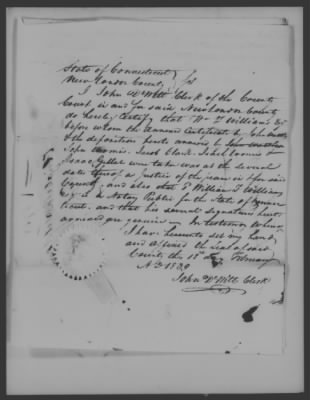 State of Connecticut
New London County } ss
I John DeWitt Clerk of the County
Court in and for said New London County
do hereby Certify that Wm T Williams Esq
before whom the annexed Certificate
& the deposition
John Loomis. Jacob Clark. Isbel Loomis &
Isaac Gillet were taken was at the several
dates thereof a Justice of the peace in & for said
County, and also that T William T Williams
Esq is a Notary Public for the State of Connec
ticut, and that his several signatures here
annexed are genuine. In testimony whereof
I have hereunto set my hand
and affixed the Seal of said
Court, this 18th February
AD 1839
John DeWitt Clerk